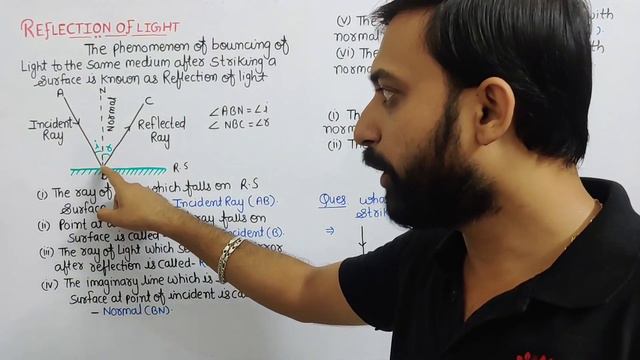 REFLECTION OF LIGHT
The phenomenon of bouncing of
Light to the same medium after striking a
surface is known as Reflection of light
A
N
C
Normal
Incident
Ray
Reflected
Ray
i
r
R.S
∠ABN = ∠i
∠NBC = ∠r
(i) The ray of which falls on R.S
surface Incident Ray (AB)
(ii) Point at ray falls on
surface is called incident (B).
(iii) The ray of light which
after reflection is called-
(iv) The imaginary line which is
surface at point of incident is
- Normal (BN).
(v) The with
normal
(vi) The
normal
(i) The
(ii) The
Ques
⇒